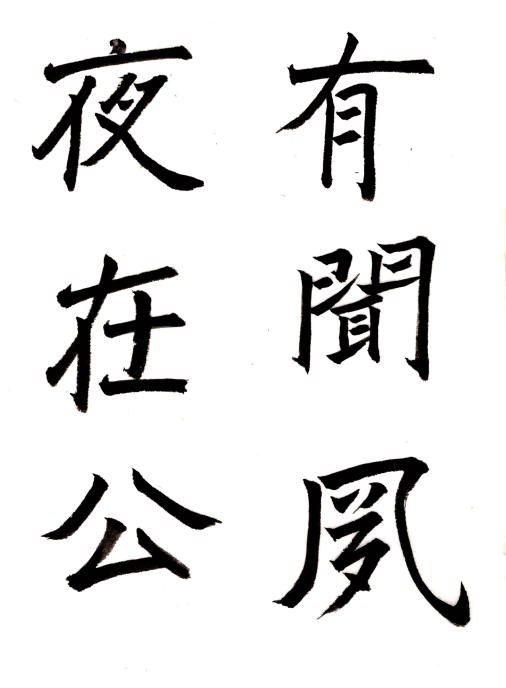 有聞夙
夜在公